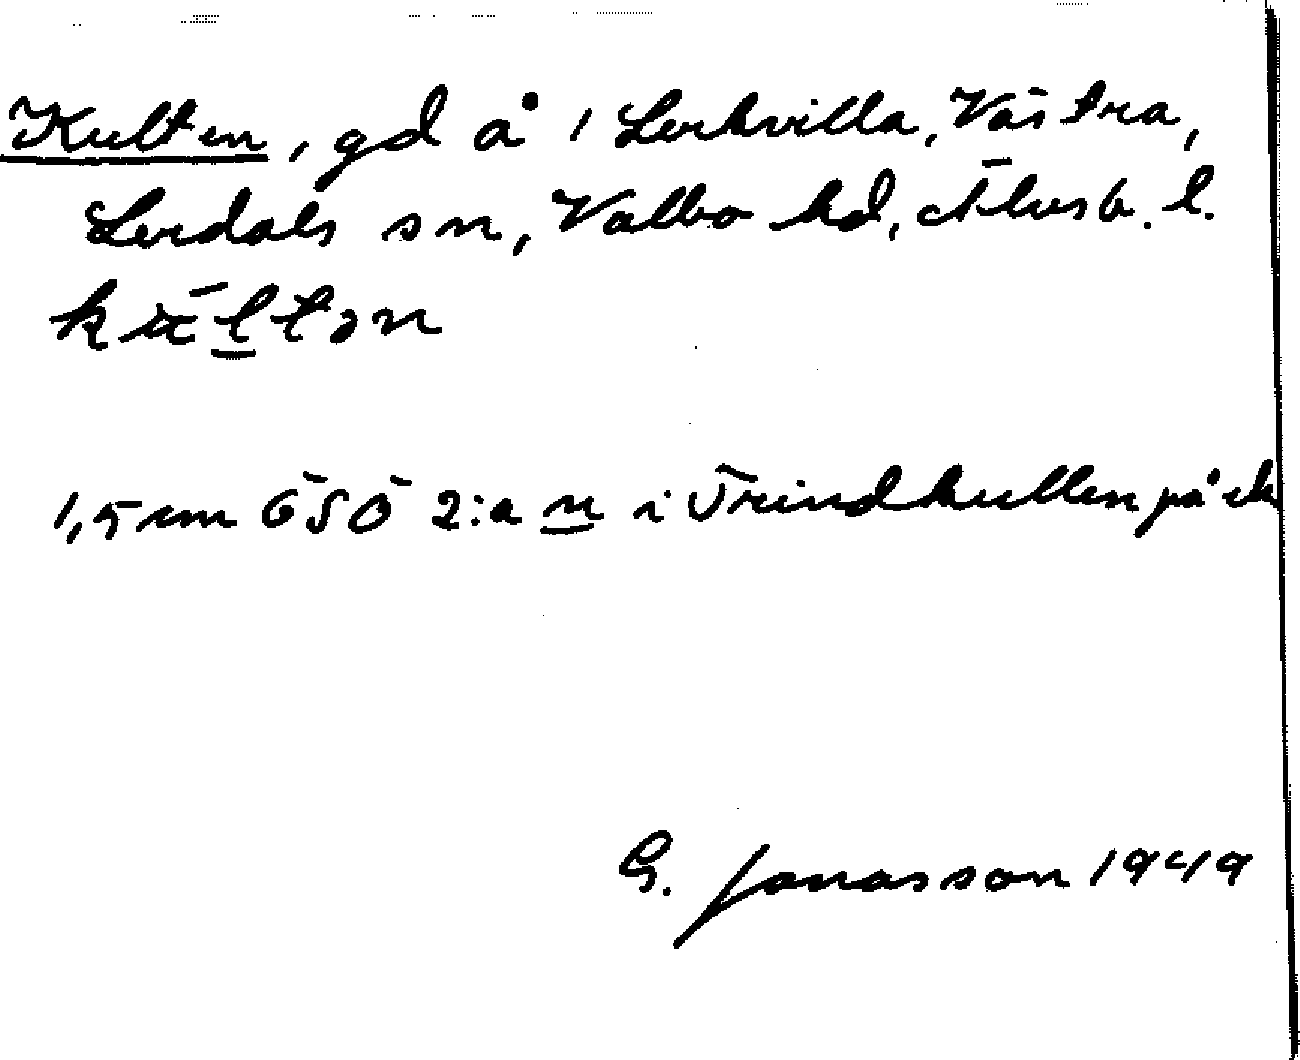 Kulten, gd å 1 Lerkvilla, Västra,
Lerdals sn, Valbo hd, Älvsb. l.
1,5 cm ÖSÖ 2:a n i Trindkullen på ek
G. Jonasson 1949